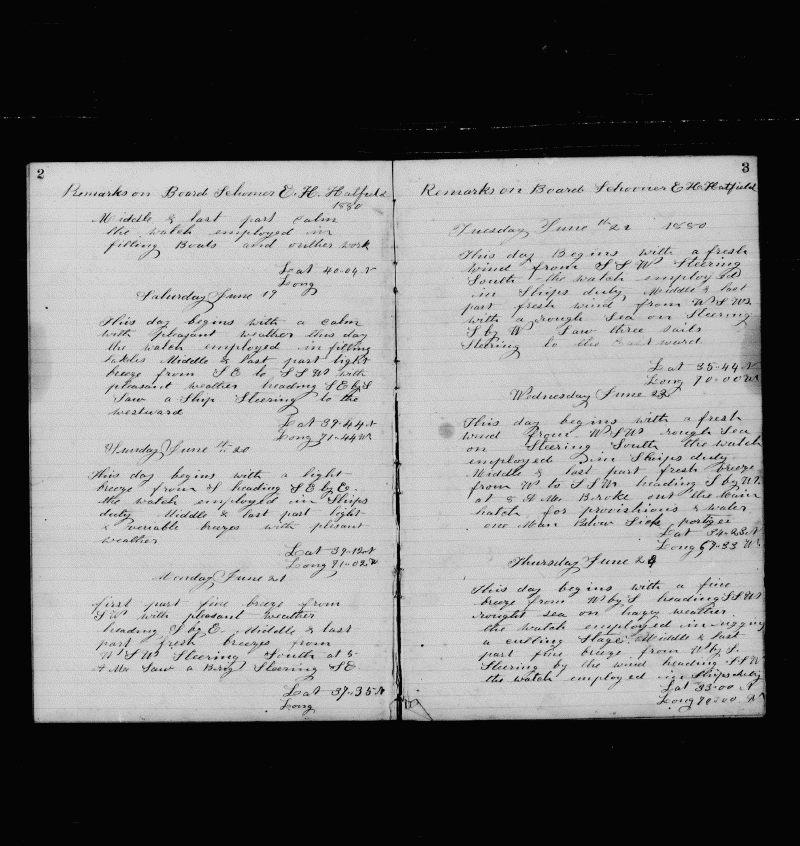 2
Remarks on Board Schooner E. H. Hatfield
1880
Middle & last part calm
the watch employed in
filling Boats and other work
Lat 40-04 N
Long
Saturday June 19
This day begins with a calm
with pleasant weather this day
the watch employed in fitting
tackles Middle & last part light
breeze from S E to S S W with
pleasant weather heading S E by S
Saw a Ship Steering to the
westward
Lat 39-44 N
Long 71-44 W
Sunday June th 20
This day begins with a light
breeze from S heading S E by E.
the watch employed in Ships
duty Middle & last part light
& variable breezes with plesant
weather
Lat 39-12 N
Long 71-02 W
Monday June 21
first part fine breeze from
SW with pleasant weather
heading S by E. Middle & last
part fresh breezes from
W S W Steering South at 8-
A M Saw a Brig Steering S E
Lat 37-35 N
Long
3
Remarks on Board Schooner E H Hatfield
Tuesday June th 22 1880
This day Begins with a fresh
wind from S S W Steering
South the watch employed
in Ships duty Middle & last
part fresh wind from W S W
with a rough Sea on Steering
S by W Saw three sails
Steering to the Eastward
Lat 35-44 N
Long 70-00 W
Wednesday June 23
This day begins with a fresh
wind from W S W rough Sea
on Steering South the watch
employed in Ships duty
Middle & last part fresh breeze
from W to S S W heading S by W.
at 8 A M Broke out the Main
hatch for provishions & water
one Man Below Sick
Lat 34-28 N
Long 69-33 W
Thursday June 24
This day begins with a fine
breeze from W by S heading S S W
rought sea on hazy weather
the watch employed in rigging
a cutting Stage. Middle & last
part fine breeze from W by S.
Steering by the wind heading S S W
the watch employed in Ships duty
Lat 33-00 N
Long 70-00 W